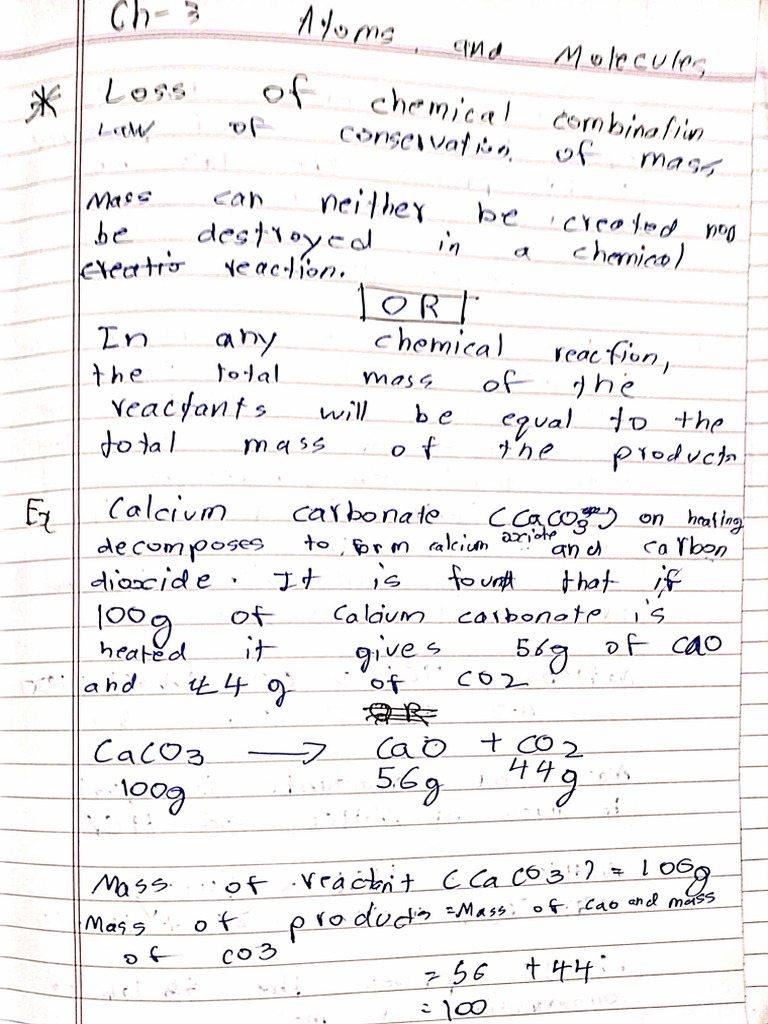 Ch-3 Atoms and Molecules
* Loss of chemical combination
Law of conservation of mass
Mass can neither be created noo
be destroyed in a chemical
creatio reaction.
OR
In any chemical reaction,
the total mass of the
reactants will be equal to the
total mass of the products
Ex Calcium carbonate (CaCO3) on heating
decomposes to form calcium oxide and carbon
dioxide. It is found that if
100g of Calcium carbonate is
heated it gives 56g of cao
and 44g of CO2
OR
CaCO3 → CaO + CO2
100g 56g 44g
Mass of reactant (CaCO3) = 100g
Mass of products = Mass of cao and mass
of CO3
= 56 + 44
= 100